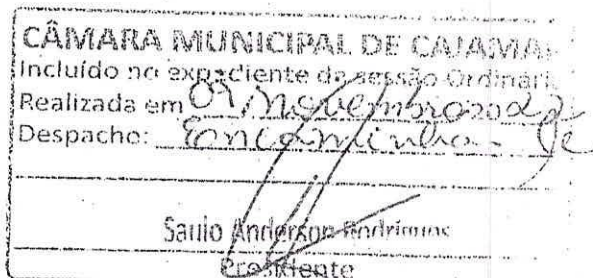 CÂMARA MUNICIPAL DE CAJAMAR
Incluído no expediente da sessão Ordinária
Realizada em 09/novembro/2022
Despacho: Encaminha-se
Saulo Anderson Rodrigues
Presidente